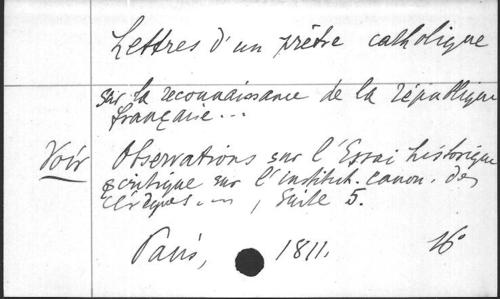 Lettres d'un prêtre catholique
sur la reconnaissance de la République
française...
Voir Observations sur l'Essai historique
& critique sur l'institut. canon. des
évêques..., Suite 5.
Paris, 1811. 16°